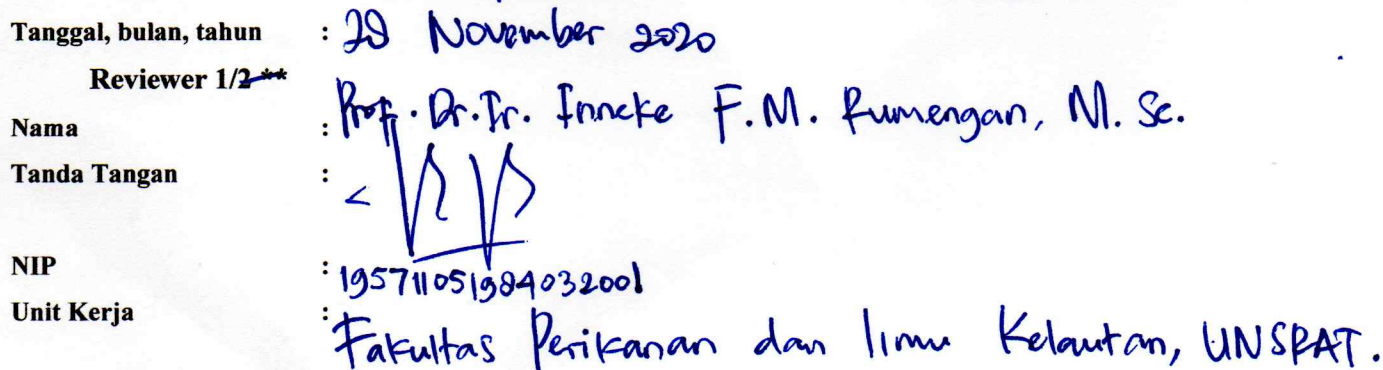 Tanggal, bulan, tahun : 28 November 2020
Reviewer 1/2 **
Nama : Prof. Dr. Ir. Inneke F.M. Rumengan, M. Sc.
Tanda Tangan :
NIP : 195711051984032001
Unit Kerja : Fakultas Perikanan dan Ilmu Kelautan, UNSRAT.